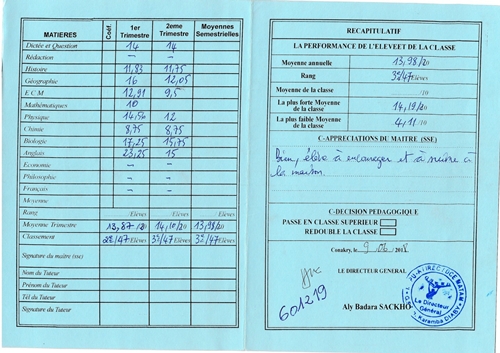 MATIERES Coéf. 1er Trimestre 2eme Trimestre Moyennes Semestrielles
Dictée et Question 14 14
Rédaction – –
Histoire 11,83 11,75
Géographie 16 12,05
E C M 12,91 9,5
Mathématiques 10
Physique 14,50 12
Chimie 8,75 8,75
Biologie 17,25 15,75
Anglais 23,25 15
Economie – –
Philosophie – –
Français – –
Moyenne
Rang /Elèves /Elèves /Elèves
Moyenne Trimestre 13,87/20 14,10/20 13,98/20
Classement /47Elèves /47Elèves /47Elèves
Signature du maître (sse)
Nom du Tuteur
Prénom du Tuteur
Tél du Tuteur
Signature du Tuteur
RECAPITULATIF
LA PERFORMANCE DE L'ELEVEET DE LA CLASSE
Moyenne annuelle 13,98/20
Rang /47Elèves
Moyenne de la classe /10
La plus forte Moyenne de la classe 14,19/20
La plus faible Moyenne de la classe 4,11/10
C-APPRECIATIONS DU MAITRE (SSE)
Bien, élève à encourager et à suivre à
la maison.
C-DECISION PEDAGOGIQUE
PASSE EN CLASSE SUPERIEUR
REDOUBLE LA CLASSE
Conakry, le 9 06 /2018
LE DIRECTEUR GENERAL
601219
Aly Badara SACKHO
Le Directeur
Général
Karamba DIABY